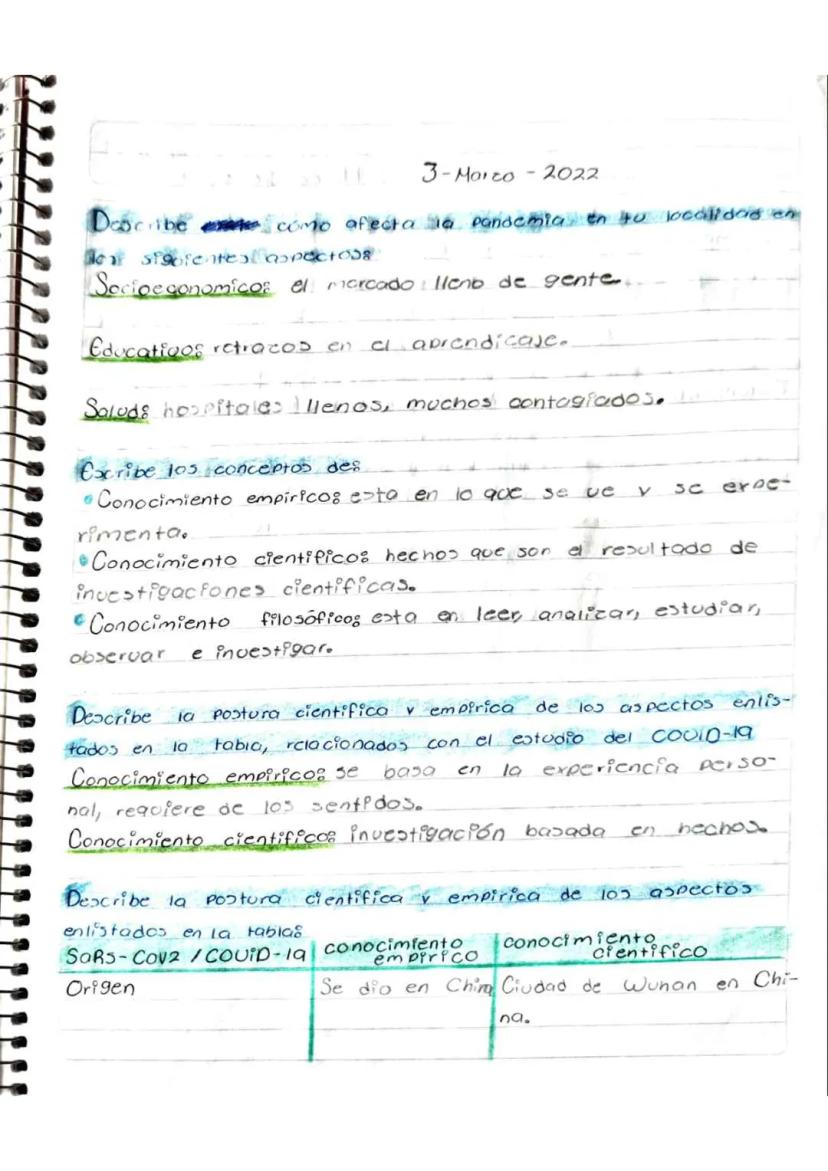 3-Marzo-2022
Describe como afecta la pandemia en tu localidad en
los siguientes aspectos:
Socioeconomico: el mercado lleno de gente.
Educativo: retrazos en el aprendicaje.
Salud: hospitales llenos, muchos contagiados.
Escribe los conceptos de:
• Conocimiento empírico: esta en lo que se ve y se expe-
rimenta.
• Conocimiento científico: hechos que son el resultado de
investigaciones científicas.
• Conocimiento filosófico: esta en leer, analizar, estudiar,
observar e investigar.
Describe la postura científica y empírica de los aspectos enlis-
tados en la tabla, relacionados con el estudio del COVID-19
Conocimiento empírico: se basa en la experiencia perso-
nal, requiere de los sentidos.
Conocimiento científico: investigación basada en hechos.
Describe la postura científica y empírica de los aspectos
enlistados en la tabla:
SARS-COV2 / COVID-19 conocimiento empírico conocimiento científico
Origen Se dio en China Ciudad de Wuhan en Chi-
na.